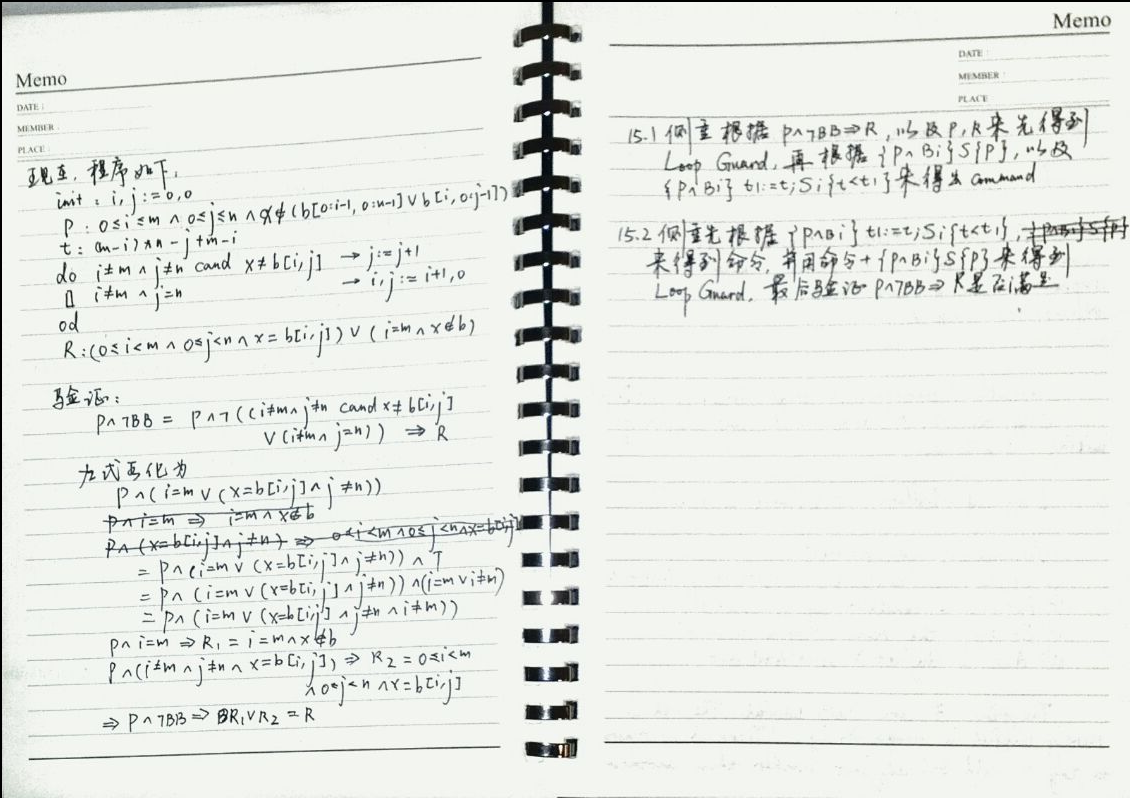 Memo
DATE :
MEMBER :
PLACE :
现在，程序如下：
init : i, j := 0,0
P : 0≤i≤m ∧ 0≤j≤n ∧ x∉(b[0:i-1, 0:n-1] ∨ b[i, 0:j-1])
t : (m-i)*n - j + m - i
do i≠m ∧ j≠n cand x≠b[i,j] → j:=j+1
▯ i≠m ∧ j=n → i,j := i+1,0
od
R:(0≤i<m ∧ 0≤j<n ∧ x=b[i,j]) ∨ (i=m ∧ x∉b)
验证：
P∧¬BB = P∧¬((i≠m∧j≠n cand x≠b[i,j]
∨(i≠m∧j=n)) ⇒ R
左式可化为
P∧(i=m∨(x=b[i,j]∧j≠n))
P∧i=m ⇒ i=m∧x∉b
P∧(x=b[i,j]∧j≠n) ⇒ 0≤i<m∧0≤j<n∧x=b[i,j]
= P∧(i=m∨(x=b[i,j]∧j≠n))∧T
= P∧(i=m∨(x=b[i,j]∧j≠n))∧(i=m∨i≠m)
= P∧(i=m∨(x=b[i,j]∧j≠n∧i≠m))
P∧i=m ⇒ R₁ = i=m∧x∉b
P∧(i≠m∧j≠n∧x=b[i,j]) ⇒ R₂ = 0≤i<m
∧0≤j<n∧x=b[i,j]
⇒ P∧¬BB ⇒ R₁∨R₂ = R
Memo
DATE :
MEMBER :
PLACE
15.1 侧重根据 P∧¬BB⇒R，以及P,R来先得到
Loop Guard，再根据{P∧Bi}S{P}，以及
{P∧Bi} t1:=t;Si{t<t1}来得出command
15.2 侧重先根据{P∧Bi} t1:=t;Si{t<t1}，{P∧Bi}S{P}
来得到命令，并用命令+{P∧Bi}S{P}来得到
Loop Guard，最后验证P∧¬BB⇒R是否满足